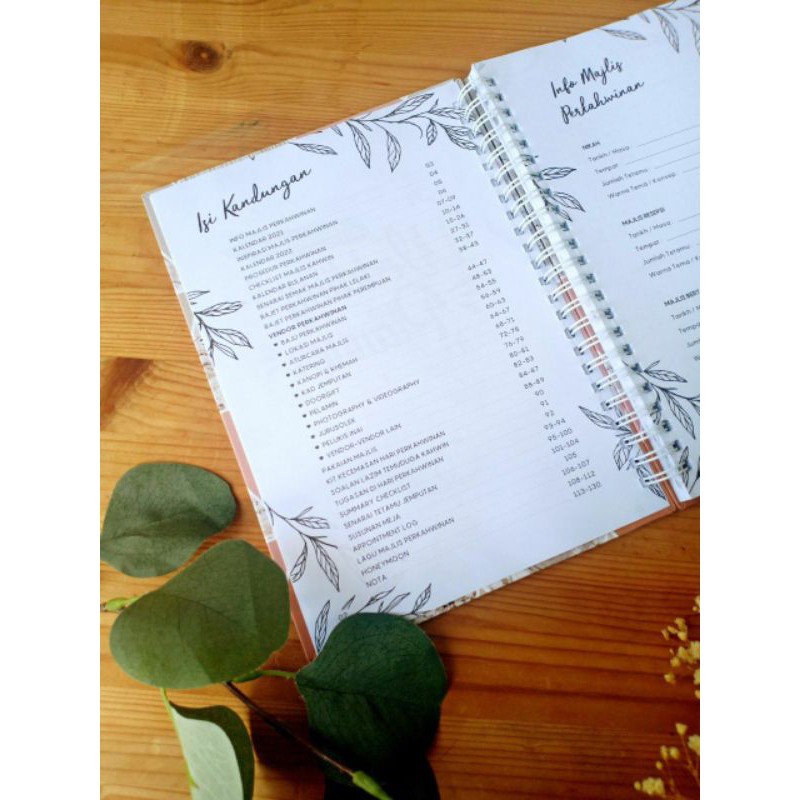 Isi Kandungan
INFO MAJLIS PERKAHWINAN 03
KALENDAR 2021 04
INSPIRASI MAJLIS PERKAHWINAN 05
KALENDAR 2022 06
PROSEDUR PERKAHWINAN 07-09
CHECKLIST MAJLIS KAHWIN 10-14
KALENDAR BULANAN 15-26
SENARAI SEMAK MAJLIS PERKAHWINAN 27-31
BAJET PERKAHWINAN PIHAK LELAKI 32-37
BAJET PERKAHWINAN PIHAK PEREMPUAN 38-43
VENDOR PERKAHWINAN
♥ BAJU PERKAHWINAN 44-47
♥ LOKASI MAJLIS 48-53
♥ ATURCARA MAJLIS 54-55
♥ KATERING 56-59
♥ KANOPI & KHEMAH 60-63
♥ KAD JEMPUTAN 64-67
♥ DOORGIFT 68-71
♥ PELAMIN 72-75
♥ PHOTOGRAPHY & VIDEOGRAPHY 76-79
♥ JURUSOLEK 80-81
♥ PELUKIS INAI 82-83
♥ VENDOR-VENDOR LAIN 84-87
PAKAIAN MAJLIS 88-89
KIT KECEMASAN HARI PERKAHWINAN 90
SOALAN LAZIM TEMUDUGA KAHWIN 91
TUGASAN DI HARI PERKAHWINAN 92
SUMMARY CHECKLIST 93-94
SENARAI TETAMU JEMPUTAN 95-100
SUSUNAN MEJA 101-104
APPOINTMENT LOG 105
LAGU MAJLIS PERKAHWINAN 106-107
HONEYMOON 108-112
NOTA 113-130
Info Majlis
Perkahwinan
NIKAH
Tarikh / Masa :
Tempat :
Jumlah Tetamu :
Warna Tema / Konsep :
MAJLIS RESEPSI
Tarikh / Masa :
Tempat :
Jumlah Tetamu :
Warna Tema / Konsep
MAJLIS
Tarikh / Masa
Tempat
Jumlah
Warna